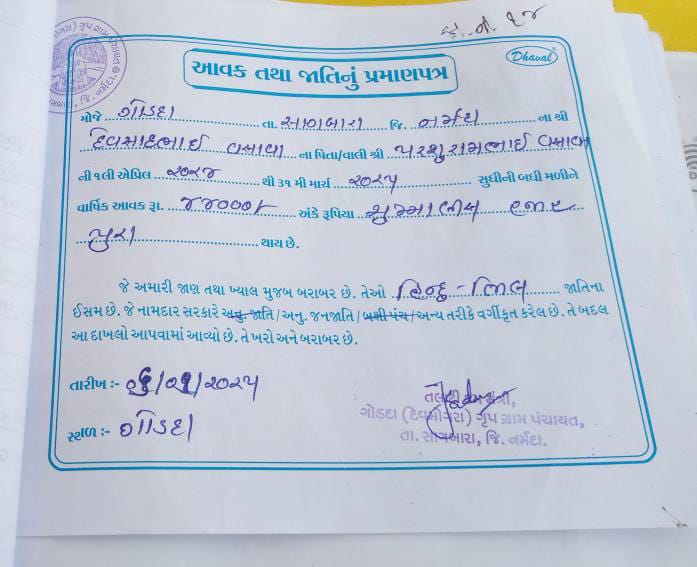 જા. નં. ૧૪
ગૃપ ગ્રામ પંચાયત
જિ. નર્મદા.
Dhaval
આવક તથા જાતિનું પ્રમાણપત્ર
મોજે ગોડદા તા. સાગબારા જિ. નર્મદા ના શ્રી
દેવસાદભાઈ વસાવા ના પિતા/વાલી શ્રી પરશુરામભાઈ વસાવા
ની ૧લી એપ્રિલ ૨૦૨૪ થી ૩૧ મી માર્ચ ૨૦૨૫ સુધીની બધી મળીને
વાર્ષિક આવક રૂા. ૪૪૦૦૦/- અંકે રૂપિયા ચુમ્માલીસ હજાર
પુરા થાય છે.
જે અમારી જાણ તથા ખ્યાલ મુજબ બરાબર છે. તેઓ હિન્દુ - ભિલ જાતિના
ઈસમ છે. જે નામદાર સરકારે અનુ. જાતિ/અનુ. જનજાતિ/બક્ષી પંચ/અન્ય તરીકે વર્ગીકૃત કરેલ છે. તે બદલ
આ દાખલો આપવામાં આવ્યો છે. તે ખરો અને બરાબર છે.
તારીખ :- /૨૦૨૫
સ્થળ :- ગોડદા
ગોડદા (દેવમોગરા) ગૃપ ગ્રામ પંચાયત,
તા. સાગબારા, જિ. નર્મદા.